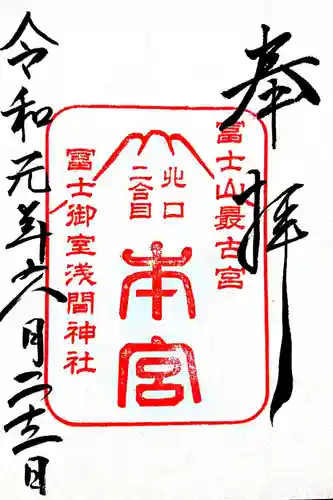 奉拝
冨士山最古宮
北口
二合目
本宮
冨士御室浅間神社
令和元年六月二十三日